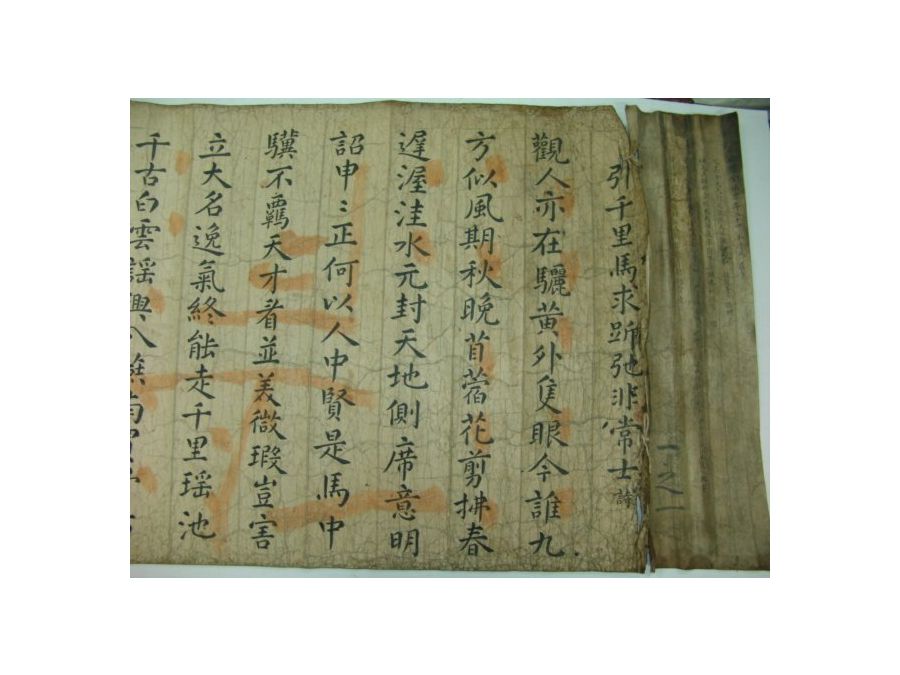 引千里馬求跅弛非常士詩
觀人亦在驪黃外隻眼今誰九
方似風期秋晩苜蓿花剪拂春
遅渥洼水元封天地側席意明
詔申〻正何以人中賢是馬中
驥不羈天才者並美微瑕豈害
立大名逸氣終能走千里瑶池
千古白雲謡興入
一之一